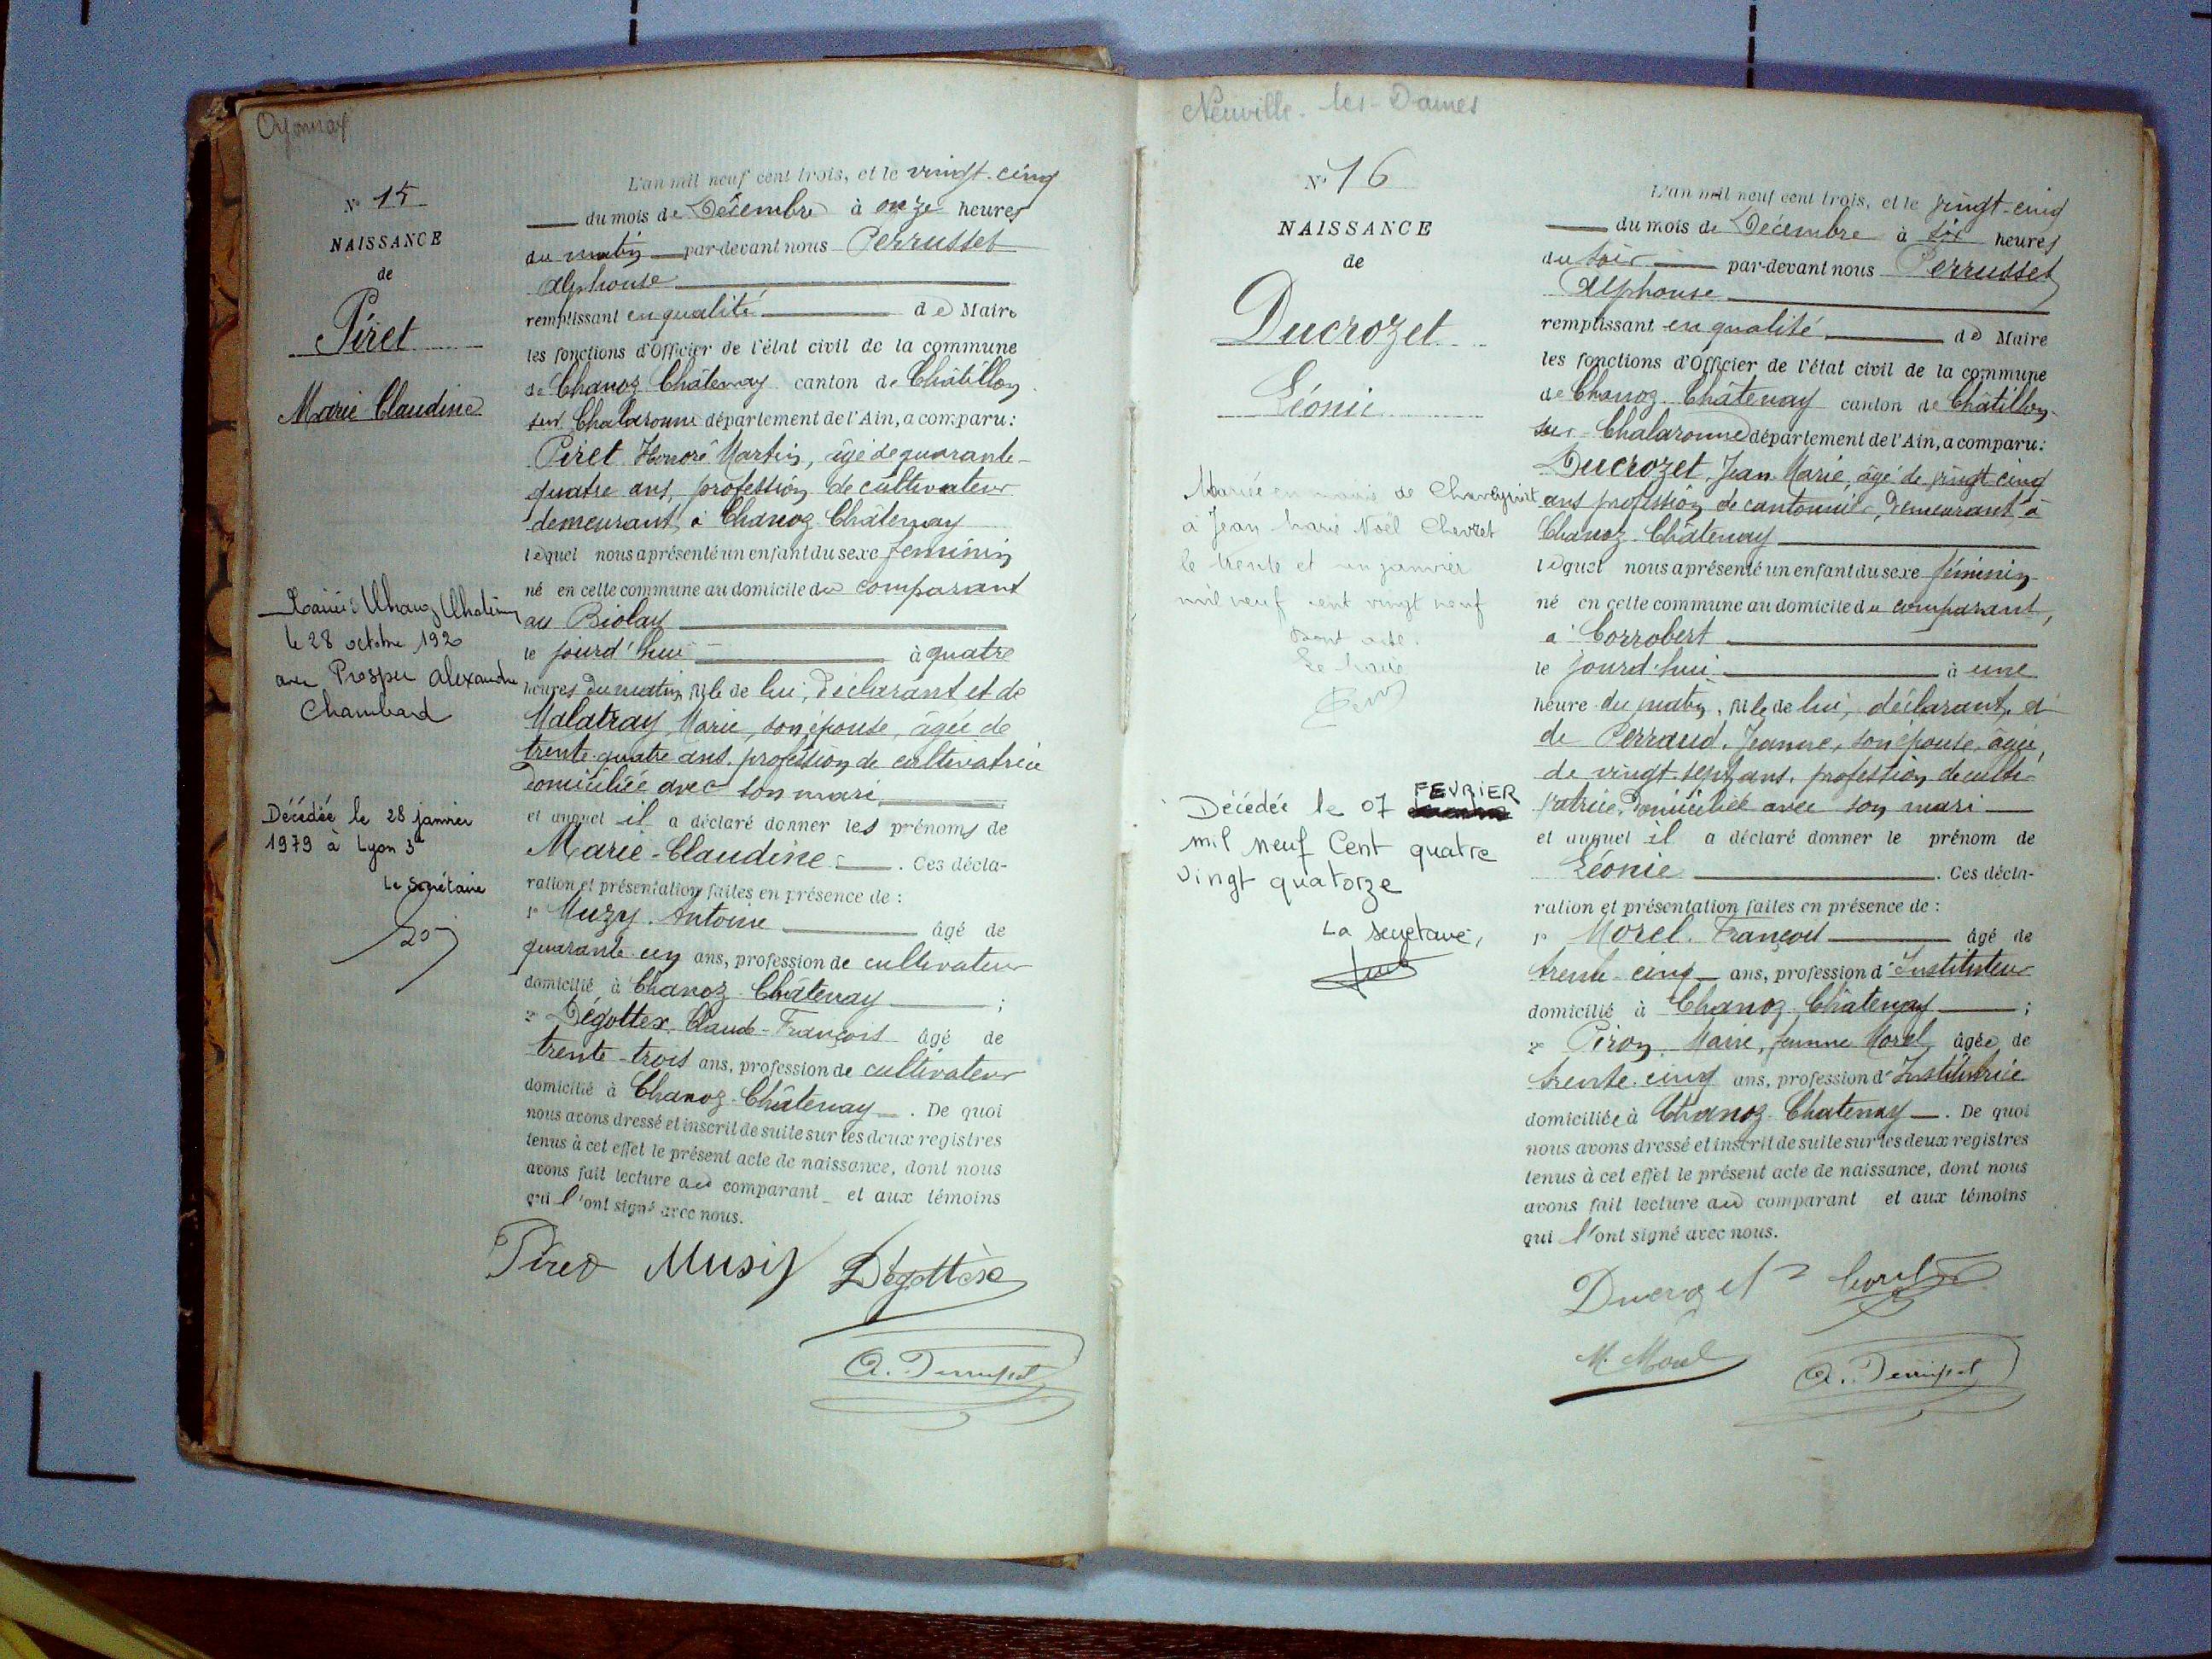 Oyonnax
N° 15
NAISSANCE
de
Piret
Marie Claudine
Mariée Chanoz Chatenay
le 28 octobre 1920
avec Prosper Alexandre
Chambard
Décédée le 28 janvier
1979 à Lyon 3e
Le Secrétaire
L'an mil neuf cent trois, et le vingt-cinq
du mois de Décembre à onze heures
du matin par-devant nous Perrusset
Alphonse
remplissant en qualité de Maire
les fonctions d'Officier de l'état civil de la commune
de Chanoz-Châtenay canton de Châtillon
sur Chalaronne département de l'Ain, a comparu:
Piret Honoré Martin, âgé de quarante-
quatre ans, profession de cultivateur
demeurant à Chanoz-Châtenay
lequel nous a présenté un enfant du sexe féminin
né en cette commune au domicile du comparant
au Biolay
le jourd'hui à quatre
heures du matin, fille de lui, déclarant, et de
Malatray, Marie, son épouse, âgée de
trente-quatre ans, profession de cultivatrice
domiciliée avec son mari,
et auquel il a déclaré donner les prénoms de
Marie-Claudine. Ces décla-
ration et présentation faites en présence de :
1° Muzy, Antoine âgé de
quarante-un ans, profession de cultivateur
domicilié à Chanoz-Châtenay ;
2° Dégottex, Claude-François âgé de
trente-trois ans, profession de cultivateur
domicilié à Chanoz-Châtenay. De quoi
nous avons dressé et inscrit de suite sur les deux registres
tenus à cet effet le présent acte de naissance, dont nous
avons fait lecture au comparant et aux témoins
qui l'ont signé avec nous.
Piret Musy Dégottex
A. Perrusset
Neuville-les-Dames
N° 16
NAISSANCE
de
Ducrozet
Léonie
Mariée en mairie de
à Jean Marie Noël Chevret
le trente et un janvier
mil neuf cent vingt neuf
Dont acte.
Le Maire
Décédée le 07 FEVRIER
mil neuf Cent quatre
vingt quatorze
La secrétaire,
L'an mil neuf cent trois, et le vingt-cinq
du mois de Décembre à six heures
du soir par-devant nous Perrusset
Alphonse
remplissant en qualité de Maire
les fonctions d'Officier de l'état civil de la commune
de Chanoz-Châtenay canton de Châtillon-
sur-Chalaronne département de l'Ain, a comparu:
Ducrozet, Jean-Marie, âgé de vingt-cinq
ans, profession de cantonnier, demeurant à
Chanoz-Châtenay
lequel nous a présenté un enfant du sexe féminin
né en cette commune au domicile du comparant,
à Corrobert
le jourd'hui à une
heure du matin, fille de lui, déclarant, et
de Perraud, Jeanne, son épouse, âgée,
de vingt-sept ans, profession de culti-
vatrice, domiciliée avec son mari
et auquel il a déclaré donner le prénom de
Léonie. Ces décla-
ration et présentation faites en présence de :
1° Morel, François âgé de
trente-cinq ans, profession d'Instituteur
domicilié à Chanoz-Châtenay ;
2° Piron, Marie, femme Morel, âgée de
trente-cinq ans, profession d'Institutrice
domiciliée à Chanoz-Chatenay. De quoi
nous avons dressé et inscrit de suite sur les deux registres
tenus à cet effet le présent acte de naissance, dont nous
avons fait lecture au comparant et aux témoins
qui l'ont signé avec nous.
Ducrozet Morel
M. Morel A. Perrusset